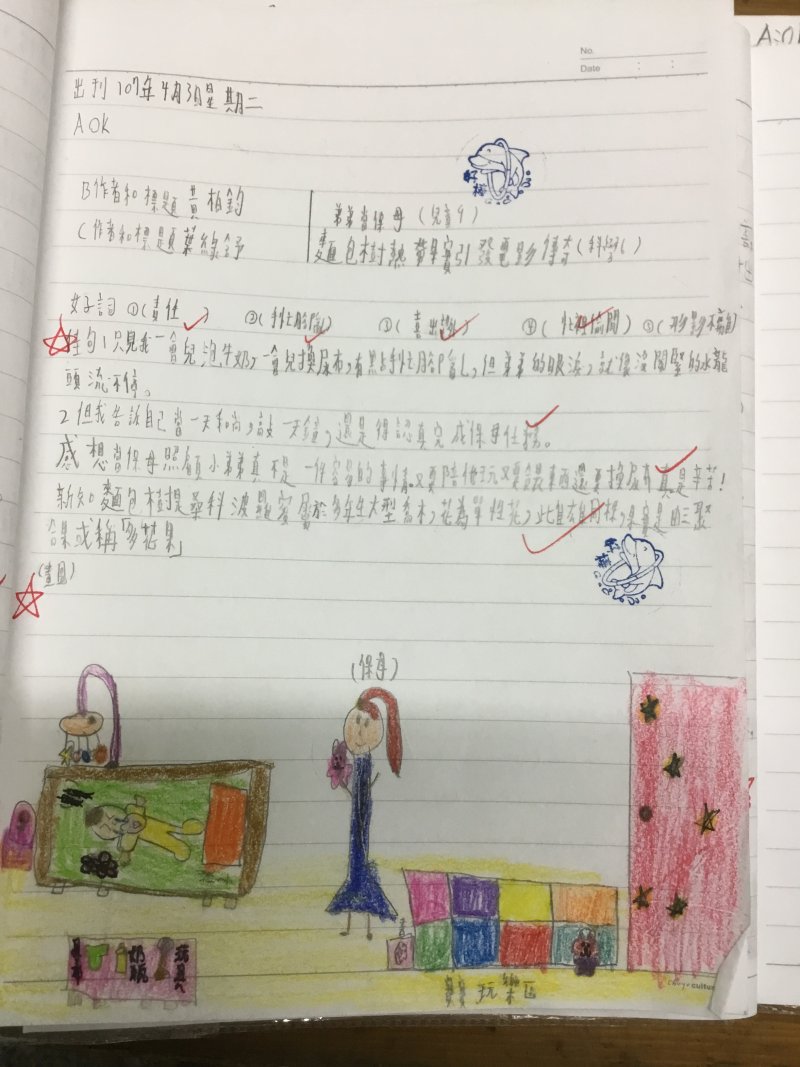 No.
Date : :
出刊 107年4月3日星期二
A OK
B作者和標題 黃柏鈞 弟弟當保母 (兒童9)
C作者和標題 葉綠舒 麵包樹熱帶果實引發電影傳奇
好詞 ①(責任) ②(手忙腳亂) ③(喜出望外) ④(忙裡偷閒) ⑤(形影不離)
佳句1只見我一會兒泡牛奶,一會兒換尿布,有點手忙腳亂,但弟弟的眼淚,就像沒關緊的水龍
頭流不停。
2但我告訴自己當一天和尚,敲一天鐘,還是得認真完成保母任務。
感想當保母照顧小弟弟真不是一件容易的事情。又要陪他玩又要餵東西還要換尿布真是辛苦!
新知麵包樹是桑科波羅蜜屬於多年生大型喬木,花為單性花,雌雄同株,果實是由聚
合果或稱「多花果」
(畫圖)
(保母)
尿布 奶瓶 玩具
寶寶玩樂區